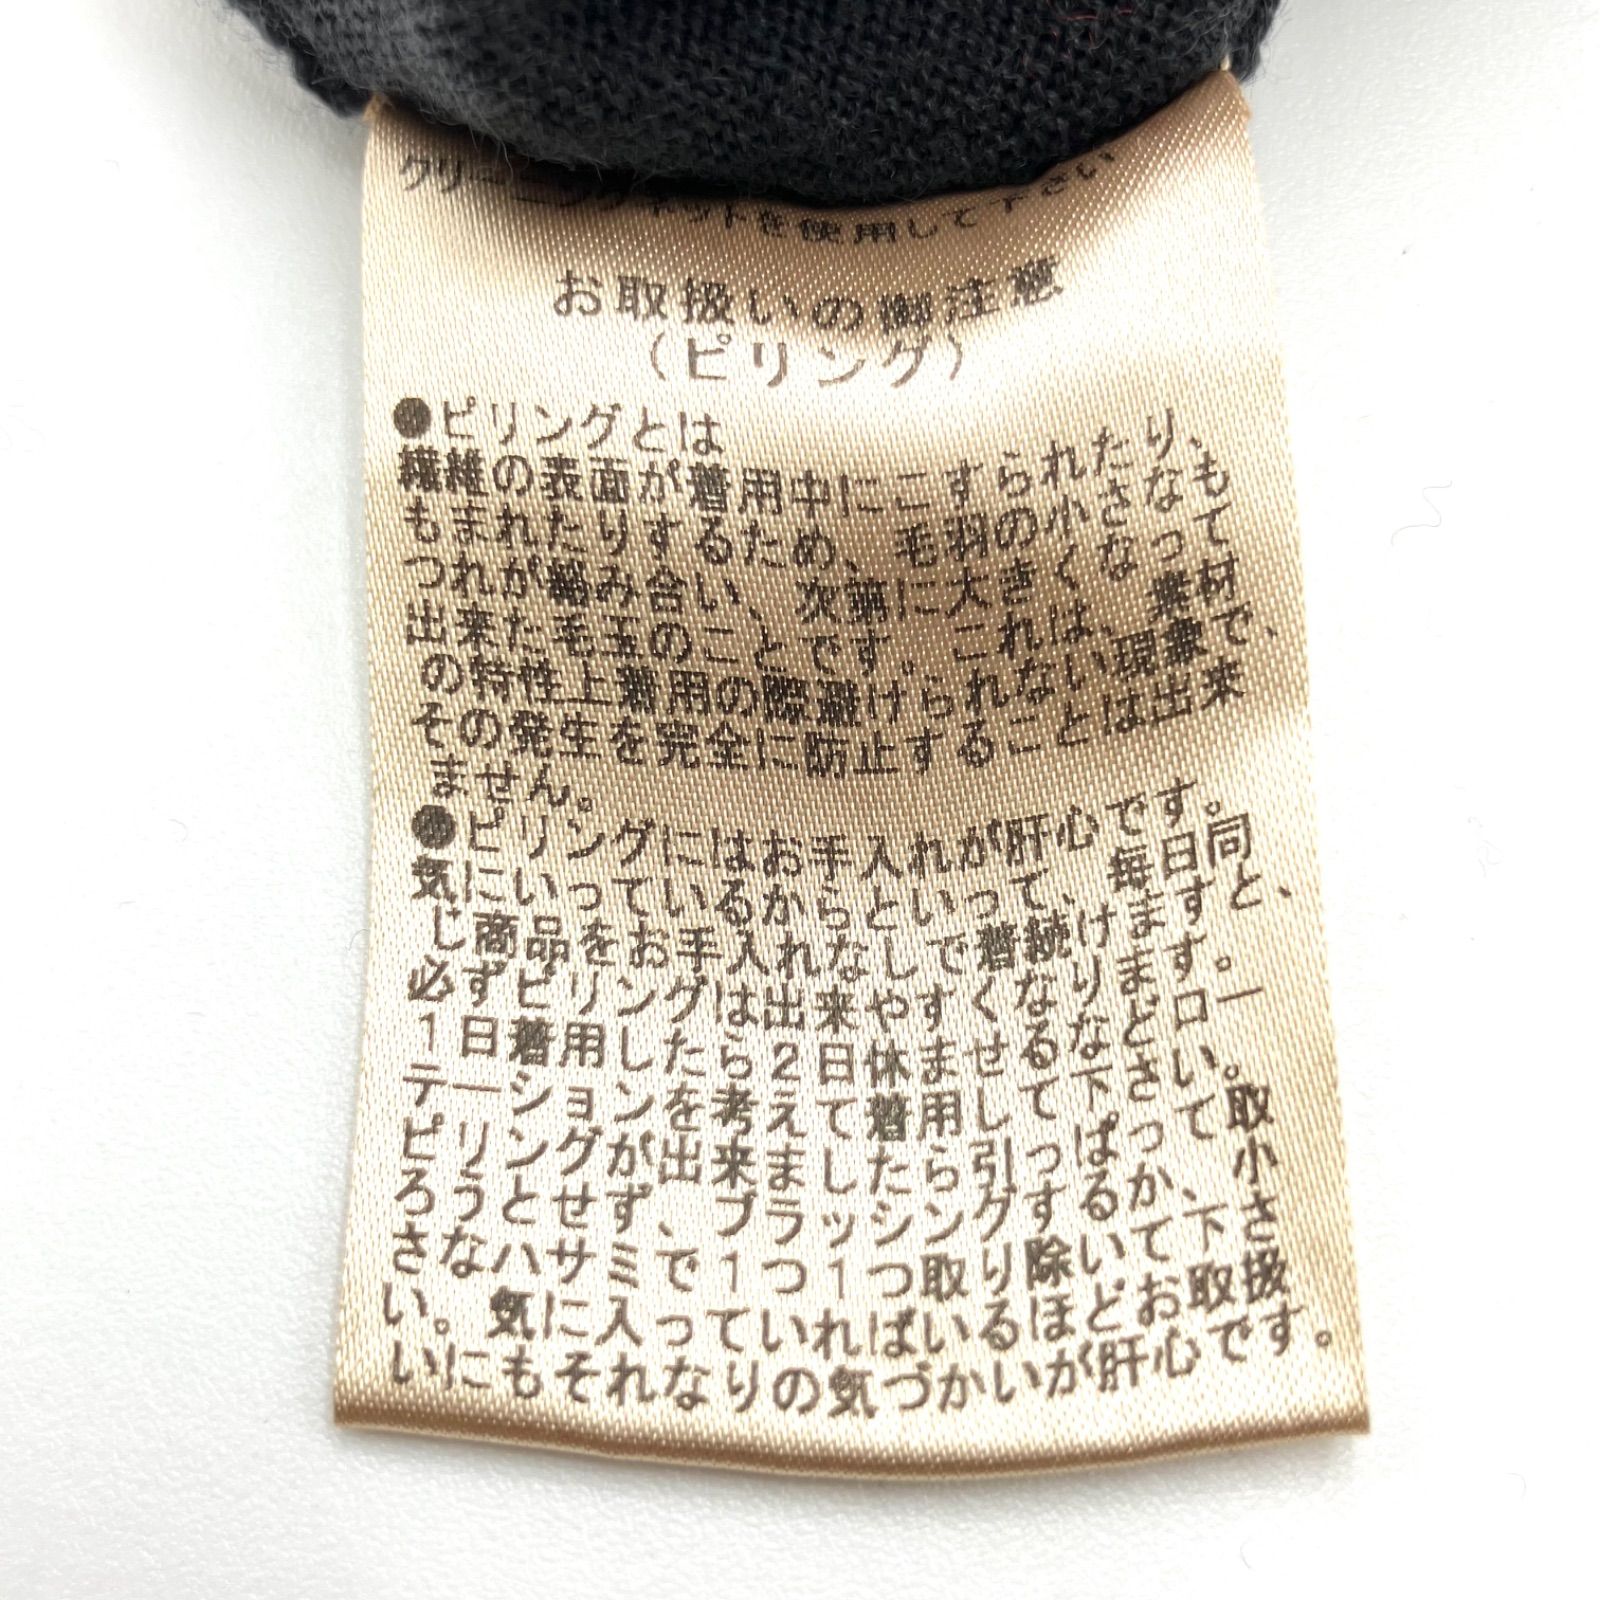 クリーニングネットを使用して下さい
お取扱いの御注意
(ピリング)
●ピリングとは
繊維の表面が着用中にこすられたり、も
もまれたりするため、毛羽の小さな
つれが絡み合い、次第に大きくなって
出来た毛玉のことです。これは、素材
の特性上着用の際避けられない現象で、
その発生を完全に防止することは出来
ません。
●ピリングにはお手入れが肝心です。
気にいっているからといって、毎日同
じ商品をお手入れなしで着続けますと、
必ずピリングは出来やすくなります。
1日着用したら2日休ませるなどローテ
ーションを考えて着用して下さい。
ピリングが出来ましたら引っぱって取
ろうとせず、ブラッシングするか、小さ
なハサミで1つ1つ取り除いて下さ
い。気に入っていればいるほどお取扱
いにもそれなりの気づかいが肝心です。